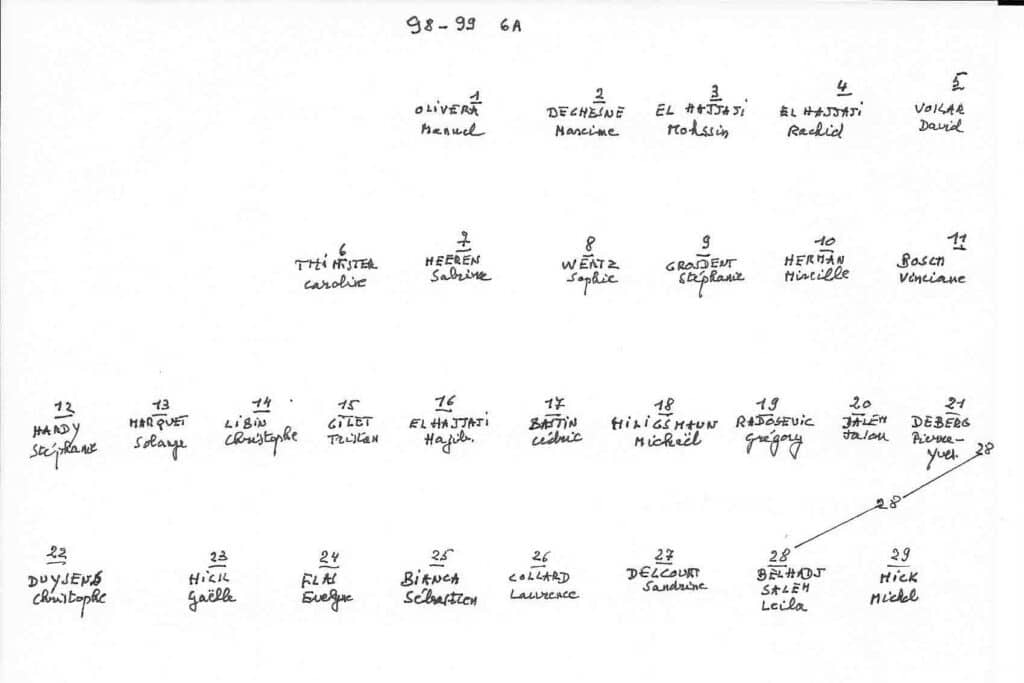 98-99 6A
1 2 3 4 5
OLIVERA DECHESNE EL HAJJAJI EL HAJJAJI VOISAR
Manuel Maxime Mohssin Rachid David
6 7 8 9 10 11
THIMISTER HEEREN WERTZ GROSDENT HERMAN BOSCH
Caroline Sabrine Sophie Stéphanie Mireille Vinciane
12 13 14 15 16 17 18 19 20 21
HARDY MARQUET LIBIN GILET EL HAJJAJI BASTIN HILIGSMANN RADOSEVIC DEBERG
Stéphanie Solange Christophe Tristan Cédric Michaël Grégory Pierre-
Yves 28
28
22 23 24 25 26 27 28 29
DUYSENS HICK FLAS BIANCA COLLARD DELCOURT BELHADJ HICK
Christophe Gaëlle Evelyne Sébastien Laurence Sandrine SALEM Michel
Leila